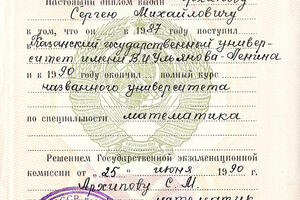 Настоящий диплом выдан Архипову
Сергею Михайловичу
в том, что он в 1987 году поступил
в Казанский государственный универ-
ситет имени В.И.Ульянова-Ленина
и в 1990 году окончил полный курс
названного университета
по специальности математика
Решением Государственной экзаменационной
комиссии от "25" июня 1990 г.
Архипову С. М.
математик
СССР